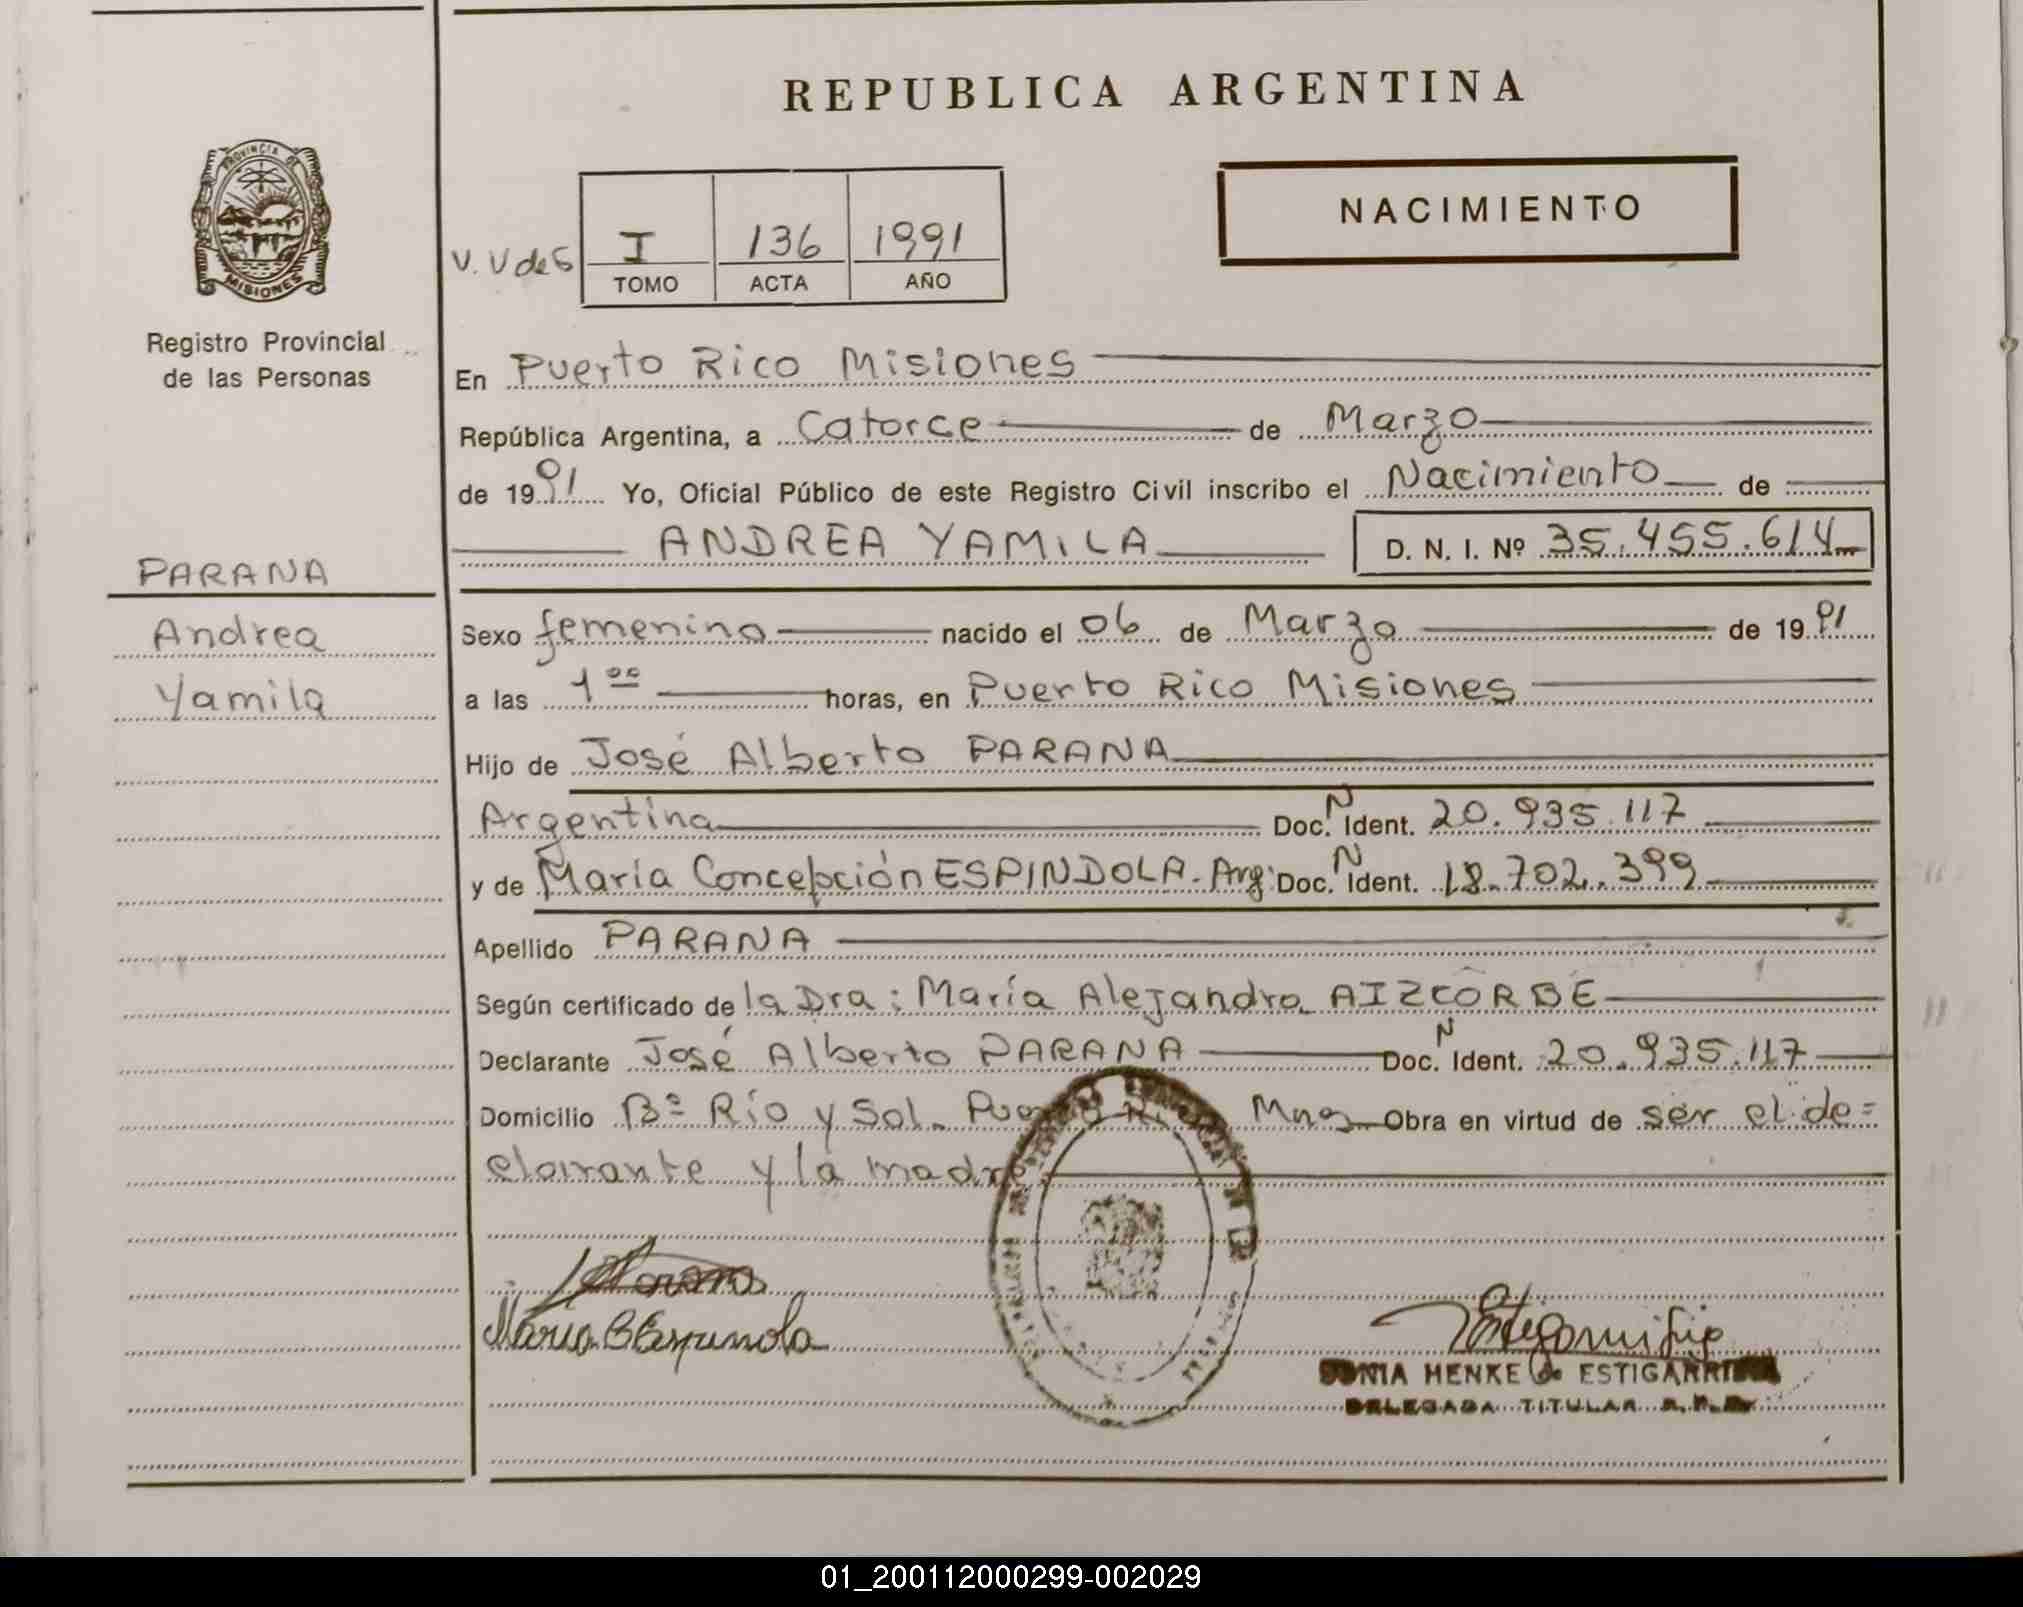 REPUBLICA ARGENTINA
PROVINCIA DE
MISIONES
Registro Provincial
de las Personas
NACIMIENTO
V. V de S
I 136 1991
TOMO ACTA AÑO
En Puerto Rico Misiones
República Argentina, a Catorce de Marzo
de 1991 Yo, Oficial Público de este Registro Civil inscribo el Nacimiento de
ANDREA YAMILA D. N. I. Nº 35.455.614
PARANA
Andrea
Yamila
Sexo femenino nacido el 06 de Marzo de 1991
a las 1 00 horas, en Puerto Rico Misiones
Hijo de José Alberto PARANA
Argentina Doc. N Ident. 20.935.117
y de María Concepción ESPINDOLA - Arg. Doc. N Ident. 18.702.399
Apellido PARANA
Según certificado de la Dra: María Alejandra AIZCORBE
Declarante José Alberto PARANA Doc. N Ident. 20.935.117
Domicilio Bº Río y Sol. Mnes Obra en virtud de ser el de=
clarante y la madre
María C Espindola
SONIA HENKE de ESTIGARRIBIA
DELEGADA TITULAR R. P. P.
01_200112000299-002029